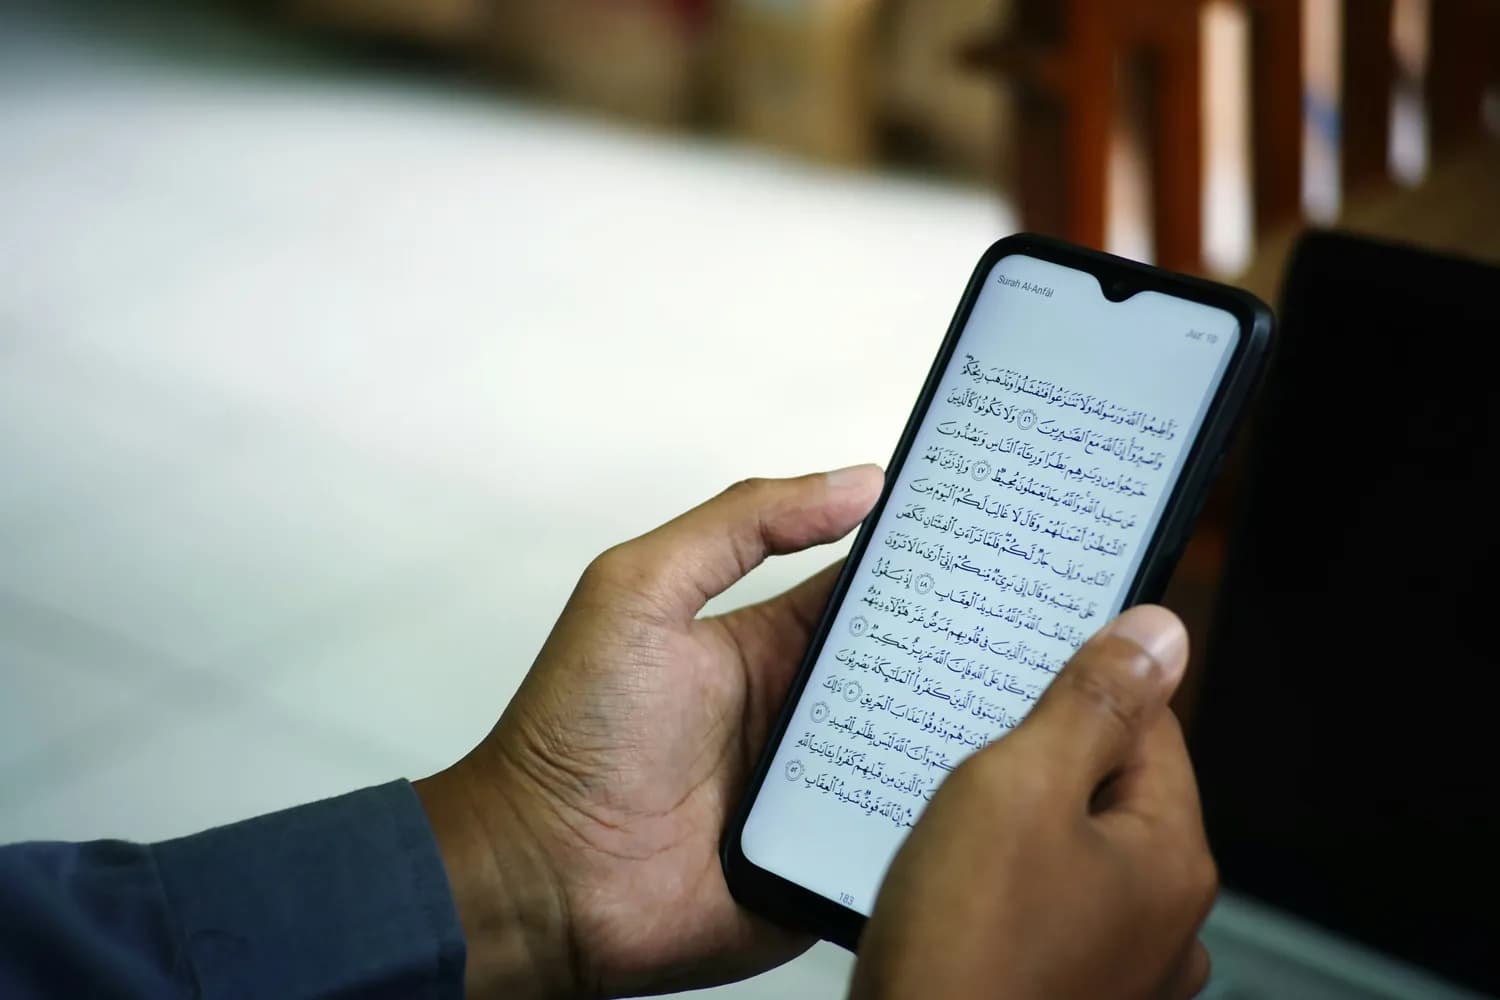 Surah Al-Anfāl
Juz' 10
وَأَطِيعُوا۟ ٱللَّهَ وَرَسُولَهُۥ وَلَا تَنَـٰزَعُوا۟ فَتَفْشَلُوا۟ وَتَذْهَبَ رِيحُكُمْ ۖ
وَٱصْبِرُوٓا۟ ۚ إِنَّ ٱللَّهَ مَعَ ٱلصَّـٰبِرِينَ ٤٦ وَلَا تَكُونُوا۟ كَٱلَّذِينَ
خَرَجُوا۟ مِن دِيَـٰرِهِم بَطَرًا وَرِئَآءَ ٱلنَّاسِ وَيَصُدُّونَ
عَن سَبِيلِ ٱللَّهِ ۚ وَٱللَّهُ بِمَا يَعْمَلُونَ مُحِيطٌ ٤٧ وَإِذْ زَيَّنَ لَهُمُ
ٱلشَّيْطَـٰنُ أَعْمَـٰلَهُمْ وَقَالَ لَا غَالِبَ لَكُمُ ٱلْيَوْمَ مِنَ
ٱلنَّاسِ وَإِنِّى جَارٌ لَّكُمْ ۖ فَلَمَّا تَرَآءَتِ ٱلْفِئَتَانِ نَكَصَ
عَلَىٰ عَقِبَيْهِ وَقَالَ إِنِّى بَرِىٓءٌ مِّنكُمْ إِنِّىٓ أَرَىٰ مَا لَا تَرَوْنَ
أَخَافُ ٱللَّهَ ۚ وَٱللَّهُ شَدِيدُ ٱلْعِقَابِ ٤٨ إِذْ يَقُولُ
وَٱلَّذِينَ فِى قُلُوبِهِم مَّرَضٌ غَرَّ هَـٰٓؤُلَآءِ دِينُهُمْ ۗ
عَلَى ٱللَّهِ فَإِنَّ ٱللَّهَ عَزِيزٌ حَكِيمٌ ٤٩
إِذْ يَتَوَفَّى ٱلَّذِينَ كَفَرُوا۟ ۙ ٱلْمَلَـٰٓئِكَةُ يَضْرِبُونَ
وَذُوقُوا۟ عَذَابَ ٱلْحَرِيقِ ٥٠ ذَٰلِكَ
وَأَنَّ ٱللَّهَ لَيْسَ بِظَلَّـٰمٍ لِّلْعَبِيدِ ٥١
وَٱلَّذِينَ مِن قَبْلِهِمْ ۚ كَفَرُوا۟ بِـَٔايَـٰتِ ٱللَّهِ
إِنَّ ٱللَّهَ قَوِىٌّ شَدِيدُ ٱلْعِقَابِ ٥٢
183